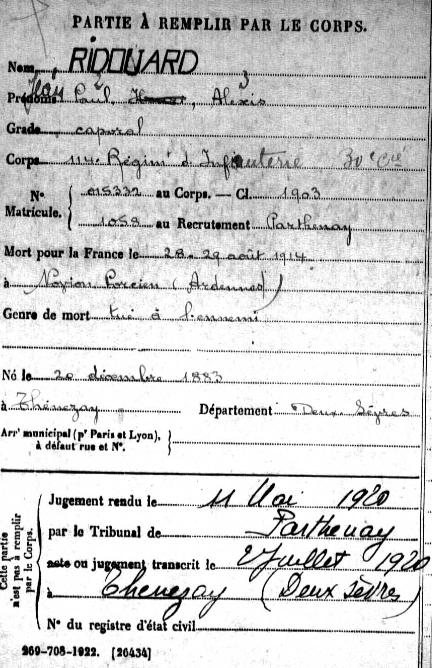 PARTIE À REMPLIR PAR LE CORPS.
Nom RIDOUARD
Prénoms Jean Paul, Alexis
Grade caporal
Corps 114e Régim^t d'Infanterie 30e Cie
N° Matricule. 015332 au Corps. — Cl. 1903
1058 au Recrutement Parthenay
Mort pour la France le 28-29 août 1914
à Novion Porcien (Ardennes)
Genre de mort tué à l'ennemi
Né le 20 décembre 1883
à Thénezay Département Deux-Sèvres
Arr^t municipal (p^r Paris et Lyon), à défaut rue et N°.
Cette partie n'est pas à remplir par le Corps.
Jugement rendu le 11 Mai 1920
par le Tribunal de Parthenay
acte ou jugement transcrit le 2 Juillet 1920
à Thenezay (Deux Sèvres)
N° du registre d'état civil
269-708-1922. [26434]